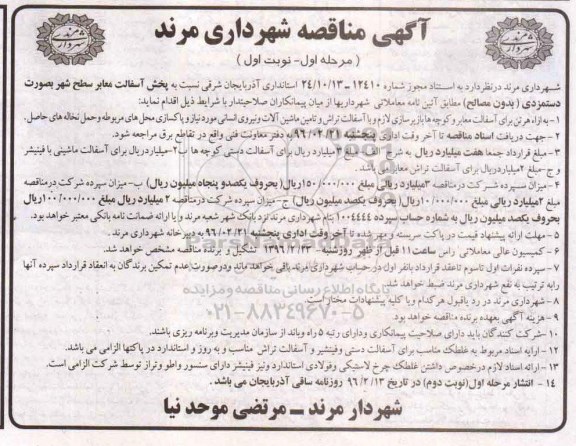 آگهی مناقصه شهرداری مرند
( مرحله اول- نوبت اول )
شهرداری مرند درنظردارد به استناد مجوز شماره ۱۲۴۱۰-۲۴/۱۰/۱۳ استانداری آذربایجان شرقی نسبت به پخش آسفالت معابر سطح شهر بصورت
دستمزدی (بدون مصالح) مطابق آئین نامه معاملاتی شهرداریها از میان پیمانکاران صلاحیتدار با شرایط ذیل اقدام نماید:
۱- به ازاء هر تن برای آسفالت معابر و کوچه ها با زیرسازی لازم و یا آسفالت تراش و تامین ماشین آلات و نیروی انسانی مورد نیاز و پاکسازی محل های مربوطه و حمل نخاله های حاصل.
۲- جهت دریافت اسناد مناقصه تا آخر وقت اداری پنجشنبه ۹۶/۰۲/۲۱ به دفتر معاونت فنی واقع در تقاطع برق مراجعه شود.
۳- مبلغ قرارداد جمعا هفت میلیارد ریال به شرح مبلغ ۳میلیارد ریال برای آسفالت دستی کوچه ها ب-۲میلیاردریال برای آسفالت ماشینی با فینیشر
و ج- مبلغ ۲میلیاردریال برای آسفالت تراش معابر می باشد.
۴- میزان سپرده شرکت درمناقصه ۳میلیارد ریالی مبلغ ۱۵۰/۰۰۰/۰۰۰ریال(بحروف یکصدو پنجاه میلیون ریال) ب-میزان سپرده شرکت درمناقصه
مبلغ ۲میلیارد ریالی مبلغ ۱۰۰/۰۰۰/۰۰۰ریال(بحروف یکصد میلیون ریال) ج- میزان سپرده شرکت درمناقصه ۲ میلیارد ریال مبلغ ۱۰۰/۰۰۰/۰۰۰ریال
بحروف یکصد میلیون ریال به شماره حساب سپرده ۱۰۰۴۴۴۴ بنام شهرداری مرند نزد بانک شهر شعبه مرند و یا ارائه ضمانت نامه بانکی معتبر خواهد بود.
۵- مهلت ارائه پیشنهاد قیمت در پاکت سربسته و مهر شده تا آخر وقت اداری پنجشنبه ۹۶/۰۲/۲۱ به دبیرخانه شهرداری مرند.
۶- کمیسیون عالی معاملاتی راس ساعت ۱۱ قبل از ظهر روز شنبه ۱۳۹۶/۰۲/۲۳ تشکیل و برنده مناقصه مشخص خواهد شد.
۷- سپرده نفرات اول تاسوم تاعقد قرارداد بانفر اول در حساب شهرداری مرند باقی خواهد ماند ودرصورت عدم تمکین برندگان به انعقاد قرارداد سپرده آنها
رابه ترتیب به نفع شهرداری مرند ضبط خواهد شد.
۸- شهرداری مرند در رد یاقبول هر کدام و یا کلیه پیشنهادات مختار است.
۹- هزینه آگهی بعهده برنده مناقصه خواهد بود.
۱۰- شرکت کنندگان باید دارای صلاحیت پیمانکاری ودارای رتبه ۵ راه وباند از سازمان مدیریت وبرنامه ریزی باشند.
۱۲- ارایه اسناد مربوط به غلطک مناسب برای آسفالت دستی وفینیشر و آسفالت تراش مناسب و به روز و استاندارد در پاکتها الزامی می باشد.
۱۳- ارائه اسناد لازم درخصوص داشتن غلطک چرخ لاستیکی وفولادی استاندارد ونیز فینیشر دارای سنسور واطو وتراز توسط شرکت الزامی است.
۱۴- انتشار مرحله اول(نوبت دوم) در تاریخ ۹۶/۲/۱۳ روزنامه ساقی آذربایجان می باشد.
شهردار مرند – مرتضی موحد نیا
پایگاه اطلاع رسانی مناقصه و مزایده
۰۲۱-۸۸۳۴۹۶۷۰-۵